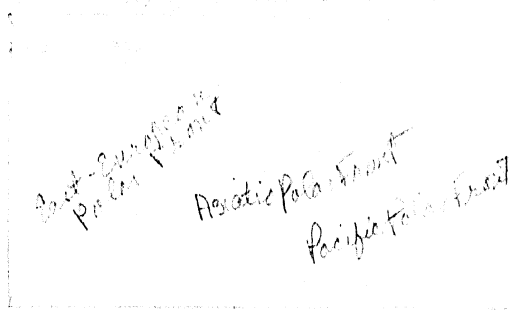 East-European
Polar Front
Asiatic Polar Front
Pacific Polar Front